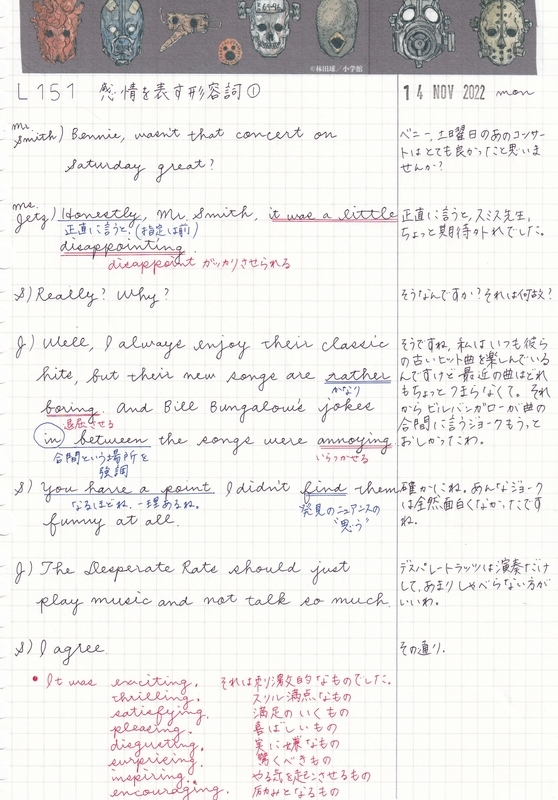 E 64-96
©林田球／小学館
L151 感情を表す形容詞①
14 NOV 2022 mon
Mr. Smith) Bennie, wasn't that concert on
Saturday great?
ベニー、土曜日のあのコンサ
ートはとても良かったと思いま
せんか？
Ms. Jetz) Honestly, Mr. Smith, it was a little
正直に言うと。(指定は前)
disappointing.
disappoint ガッカリさせられる
正直に言うと、スミス先生、
ちょっと期待外れでした。
S) Really? Why?
そうなんですか？それは何故？
J) Well, I always enjoy their classic
hits, but their new songs are rather
かなり
boring. And Bill Bungalow's jokes
退屈させる
in between the songs were annoying.
合間という場所を
強調
いらつかせる
そうですね、私はいつも彼ら
の古いヒット曲を楽しんでいる
んですけど最近の曲はどれ
もちょっとつまらなくて。それ
からビルバンガローが曲の
合間に言うジョークもうっと
おしかったわ。
S) You have a point I didn't find them
なるほどね、一理あるね。
発見のニュアンスの
"思う"
funny at all.
確かにね。あんなジョーク
は全然面白くなかったです
ね。
J) The Desperate Rats should just
play music and not talk so much.
デスパレートラッツは演奏だけ
して、あまりしゃべらない方が
いいわ。
S) I agree.
その通り。
• It was exciting. それは刺激的なものでした。
thrilling. スリル満点なもの
satisfying. 満足のいくもの
pleasing. 喜ばしいもの
disgusting. 実に嫌なもの
surprising.驚くべきもの
inspiring. やる気を起こさせるもの
encouraging. 励みとなるもの